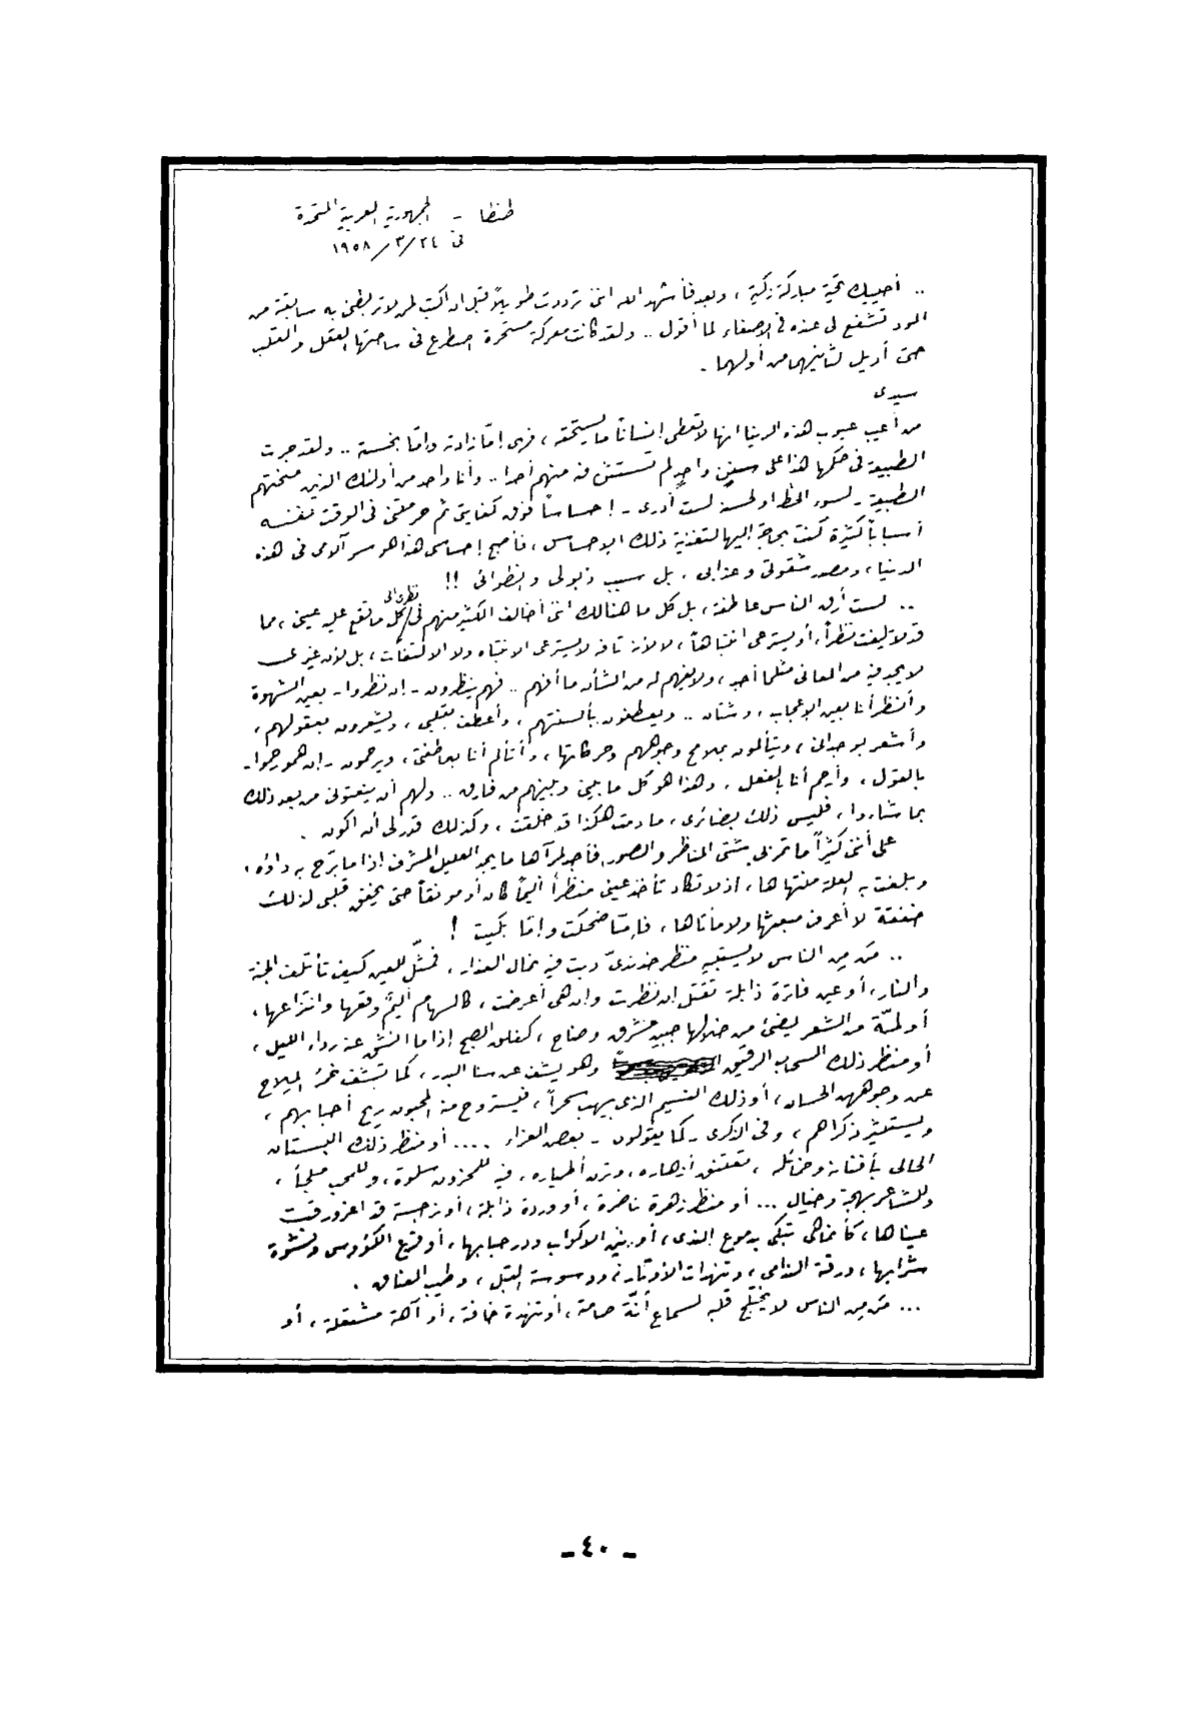 طنطا - الجمهورية العربية المتحدة
فى ٢٤/٣/١٩٥٨
.. أحييك تحية مباركة زكية ، وبعد فأشهد الله أننى ترددت طويلاً قبل أن أكتب لمن لا تربطنى به سابقة من
الود تشفع لى عنده فى الإصغاء لما أقول .. ولقد كانت معركة مستحرة اصطرع فى ساحتها العقل والقلب
حتى أديل لثانيهما من أولهما .
سيدى
من أعيب عيوب هذه الدنيا أنها لا تعطى إنساناً ما يستحقه ، فهى إمّا زادته وإمّا بخسته .. ولقد جرت
الطبيعة فى حكمها هذا على سنن واحدٍ لم تستثن منهم أحداً .. وأنا واحد من أولئك الذين منحتهم
الطبيعة - لسوء الحظ أو لحسنه لستُ أدرى - إحساساً فوق كفايتى ثم حرمتنى فى الوقت نفسه
أسباباً كثيرة كنت بحاجة إليها لتغذية ذلك الإحساس ، فأصبح إحساسى هذا هو سر آلامى فى هذه
الدنيا ، ومصدر شقوتى وعذابى ، بل سبب ذبولى وانطوائى !!
.. لست أرق الناس عاطفة ، بل كل ما هنالك أننى أخالف الكثير منهم فى نظرتى إلى كل ما تقع عليه عينى ، مما
قد لا يلفت نظراً ، أو يسترعى انتباهاً ، لا لأنه تافه لا يسترعى الانتباه ولا الالتفات ، بل لأن غيرى
لا يجد فيه من المعانى مثلما أجد ، ولا يفهم له من الشأن ما أفهم .. فهم ينظرون - إن نظروا - بعين الشهوة
وأنظر أنا بعين الإعجاب ، وشتان .. ويعطفون بألسنتهم ، وأعطف بقلبى ، ويشعرون بعقولهم ،
وأشعر بوجدانى ، ويتألمون بملامح وجوههم وحركاتها ، وأتألم أنا بعاطفتى ، ويرحمون - إن هم رحموا -
بالقول ، وأرحم أنا بالفعل . وهذا هو كل ما بينى وبينهم من فارق .. ولهم أن ينعتونى من بعد ذلك
بما شاءوا ، فليس ذلك بضائرى ، ما دمت هكذا قد خلقت ، وكذلك قدر لى أن أكون .
على أننى كثيراً ما تمر بى شتى المناظر والصور فأجد لمرآها ما يجد العليل المشرف إذا ما برّح به داؤه ،
وبلغت به العلة منتهاها ، إذ لا تكاد تأخذ عينى منظراً أليماً كان أو مونقاً حتى يخفق قلبى لذلك
خفقة لا أعرف مبعثها ولا مأتاها ، فإمّا ضحكت وإمّا بكيت !
.. مَن مِن الناس لا يستبيه منظر خد ندىّ دبت فيه نمال العذار ، فمثّل للعين كيف تأتلف الجنة
والنار ، أو عين فاترة ذابلة تقتل إن نظرت وإن هى أعرضت ، كالسهام أليمٌ وقعها وانتزاعها ،
أو لمّة من الشعر يضئ من خلالها جبين مشرق وضاح ، كفلق الصبح إذا ما انشق عنه رداء الليل ،
أو منظر ذلك السحاب الرقيق وهو يشف عن سنا البدر ، كما تشف خُمُرُ الملاح
عن وجوههن الحسان ، أو ذلك النسيم الذى يهب سحراً ، فيستروح منه المحبون ريح أحبابهم ،
ويستثير ذكراهم ، وفى الذكرى - كما يقولون - بعض العزاء .... أو منظر ذلك البستان
الحالى بأفنانه وخمائله ، تعتنق أزهاره ، وترن أطياره ، فيه للمحزون سلوة ، وللمحب ملجأ ،
وللشاعر بهجة وخيال ... أو منظر زهرة ناضرة ، أو وردة ذابلة ، أو نرجسة قد اغرورقت
عيناها ، كأنما هى تبكى بدموع الندى ، أو بنير الأكواب ودر حبابها ، أو قرع الكؤوس ونشوة
شرابها ، ورقة الندامى ، وتنهدات الأوتار ، ووسوسة القبل ، وطيب العناق .
... مَن مِن الناس لا يختلج قلبه لسماع أنّة صامتة ، أو تنهدة خافتة ، أو آهة مشتعلة ، أو
- ٤٠ -